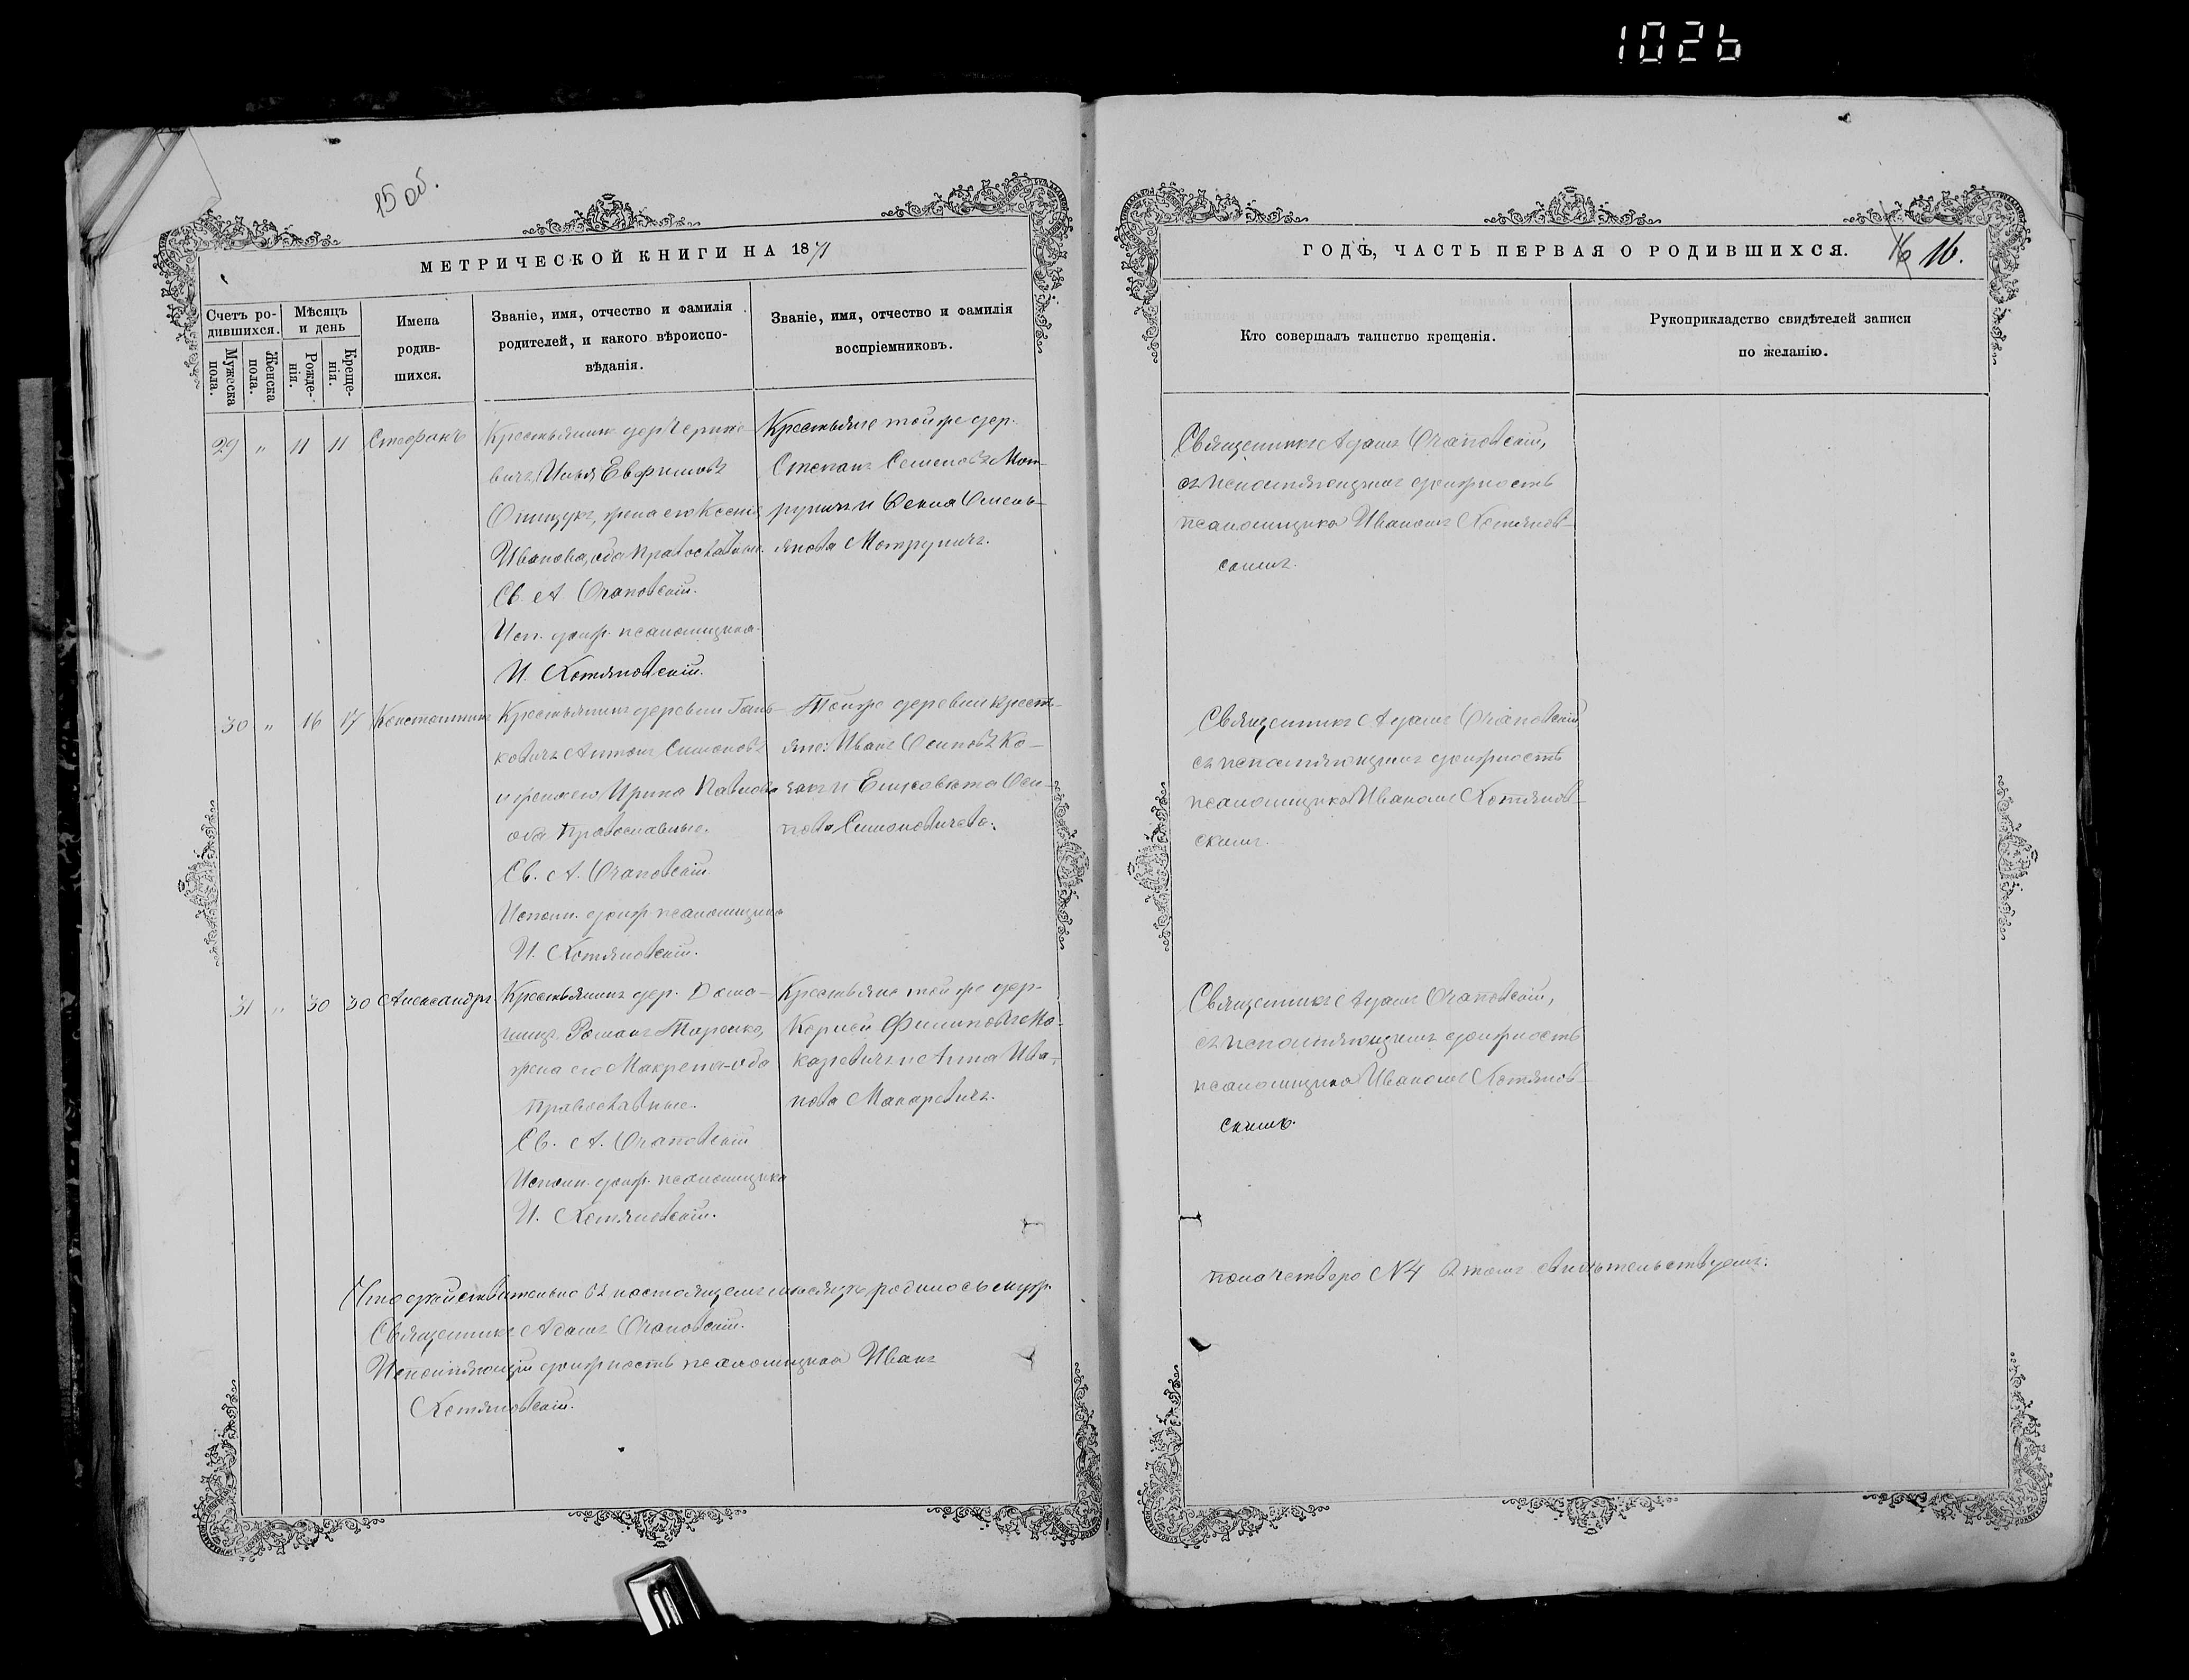 1026
15 об.
МЕТРИЧЕСКОЙ КНИГИ НА 1871
Счетъ родившихся.
Мужеска пола.
Женска пола.
Мѣсяцъ и день
Рожденія.
Крещенія.
Имена родившихся.
Званіе, имя, отчество и фамилія родителей, и какого вѣроисповѣданія.
Званіе, имя, отчество и фамилія воспріемниковъ.
29 " 11 11 Стефанъ
Крестьянинъ дер.
Илья Евфимовъ
жена его Ксенія
Иванова, оба православные.
Св. А. Очаповскій.
Исп. долж. псаломщика
И. Котяновскій.
Крестьяне той же дер.
Степанъ Семеновъ Мот-
рунич и
Мотруничъ.
30 " 16 17 Константинъ
Крестьянинъ деревни Гань-
ковичъ Антонъ Симоновъ
и жена его Ирина Павлова
оба православные.
Св. А. Очаповскій.
Исполн. долж. псаломщика
И. Котяновскій.
Той же деревни крест-
яне: Иванъ Осиповъ Ко-
закъ и Елисавета Оси-
пова Симоновичева.
31 " 30 30 Александръ
Крестьянинъ дер. Дома-
шицъ, Романъ
жена его оба
православные.
Св. А. Очаповскій
Исполн. долж. псаломщика
И. Котяновскій.
Крестьяне той же дер.
Корней Филиповъ Ма-
каревичъ и Анна Ива-
нова Макаревичъ.
Что дѣйствительно въ настоящемъ мѣсяцѣ родилось муж.
Священникъ Адамъ Очаповскій.
Исполняющій должность псаломщика Иванъ
Котяновскій.
ГОДѢ, ЧАСТЬ ПЕРВАЯ О РОДИВШИХСЯ.
16 16.
Кто совершалъ таинство крещенія.
Рукоприкладство свидѣтелей записи по желанію.
Священникъ Адамъ Очаповскій,
съ исполняющимъ должность
псаломщика Иваномъ Котянов-
скимъ.
Священникъ Адамъ Очаповскій
съ исполняющимъ должность
псаломщика Иваномъ Котянов-
скимъ.
Священникъ Адамъ Очаповскій,
съ исполняющимъ должность
псаломщика Иваномъ Котянов-
скимъ.
пола четверо №4 въ томъ свидѣтельствуемъ: